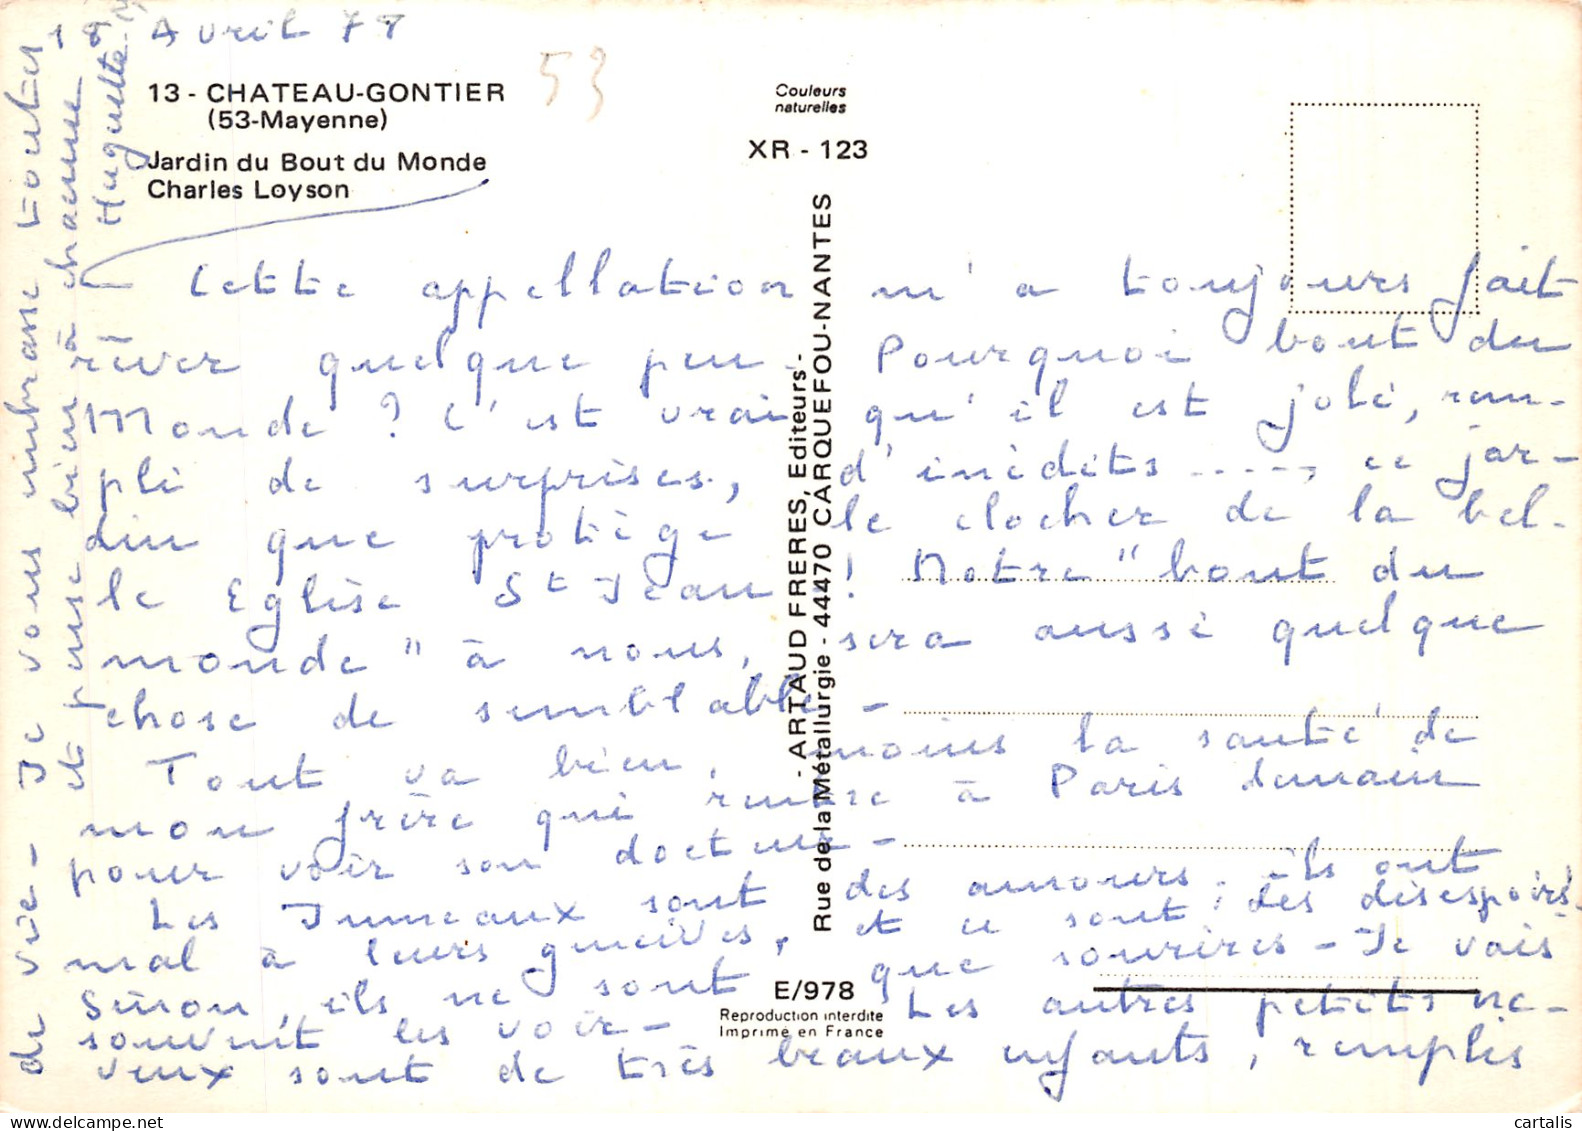 18 Avril 78
53
13 - CHATEAU-GONTIER
(53-Mayenne)
Jardin du Bout du Monde
Charles Loyson
Couleurs
naturelles
XR - 123
- ARTAUD FRERES, Editeurs -
Rue de la Métallurgie - 44470 CARQUEFOU-NANTES
E/978
Reproduction interdite
Imprimé en France
Cette appellation m'a toujours fait
rêver quelque peu. Pourquoi bout du
Monde ? C'est vrai qu'il est joli, rem-
pli de surprises, d'inédits ....., ce jar-
din que protège le clocher de la bel-
le Eglise St Jean ! Notre "bout du
monde" à nous, sera aussi quelque
chose de semblable -
Tout va bien, moins la santé de
mon frère qui rentre à Paris demain
pour voir son docteur -
Les Jumeaux sont des amours, ils ont
mal à leurs gencives, et ce sont des désespoirs.
Sinon, ils ne sont que sourires - Je vais
souvent les voir - Les autres petits ne-
veux sont de très beaux enfants, remplis
de vie - Je vous embrasse toutes
et pense bien à chacune
Huguette
cartalis